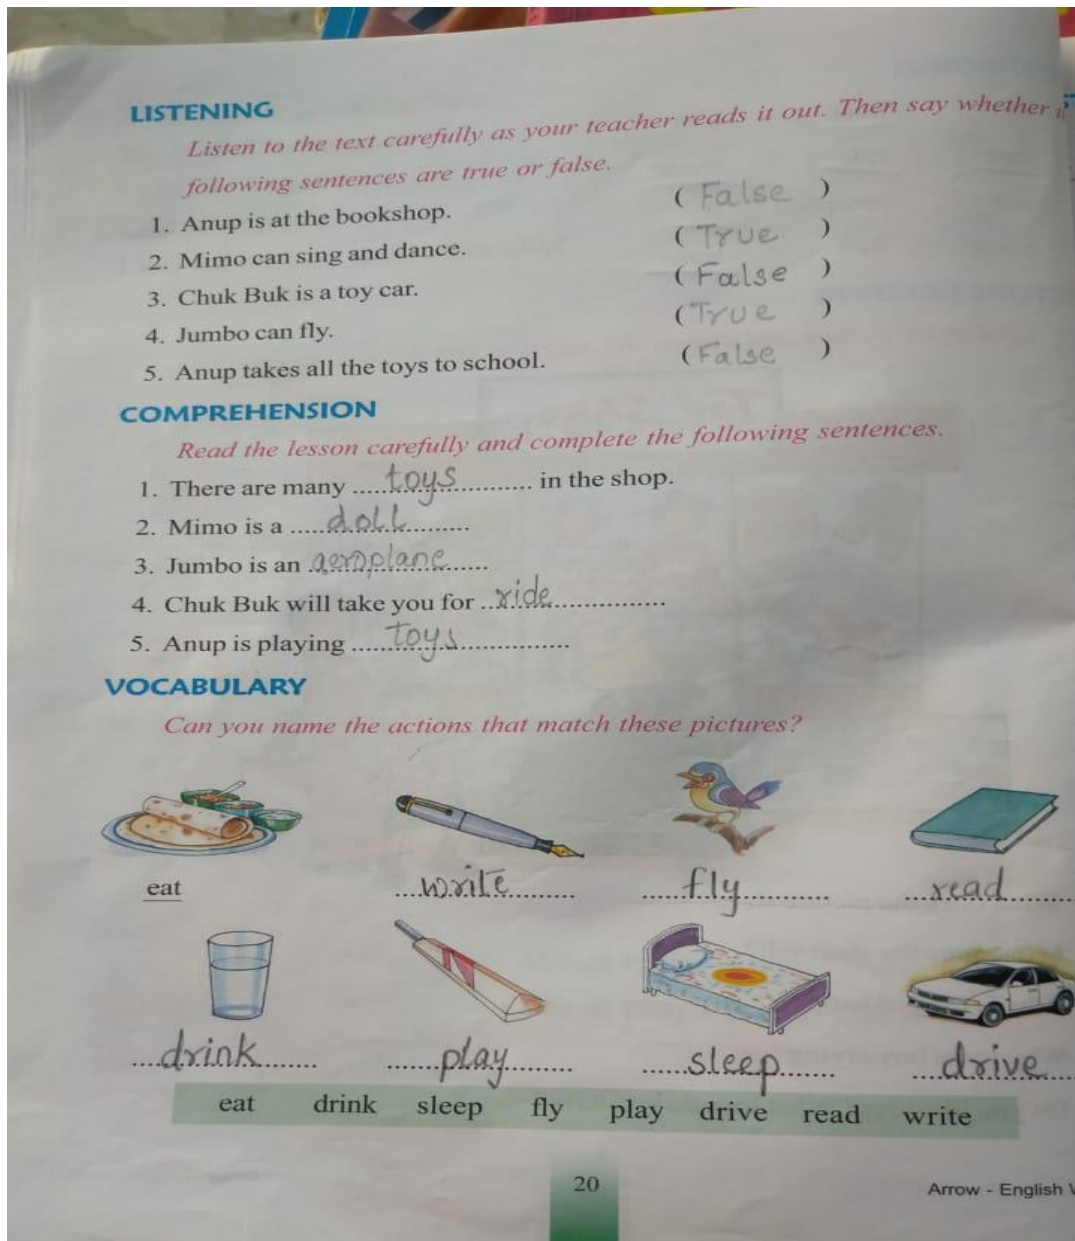 LISTENING
Listen to the text carefully as your teacher reads it out. Then say whether
following sentences are true or false.
1. Anup is at the bookshop. ( False )
2. Mimo can sing and dance. ( True )
3. Chuk Buk is a toy car. ( False )
4. Jumbo can fly. ( True )
5. Anup takes all the toys to school. ( False )
COMPREHENSION
Read the lesson carefully and complete the following sentences.
1. There are many toys in the shop.
2. Mimo is a doll
3. Jumbo is an aeroplane
4. Chuk Buk will take you for ride
5. Anup is playing toys
VOCABULARY
Can you name the actions that match these pictures?
eat write fly read
drink play sleep drive
eat drink sleep fly play drive read write
20
Arrow - English